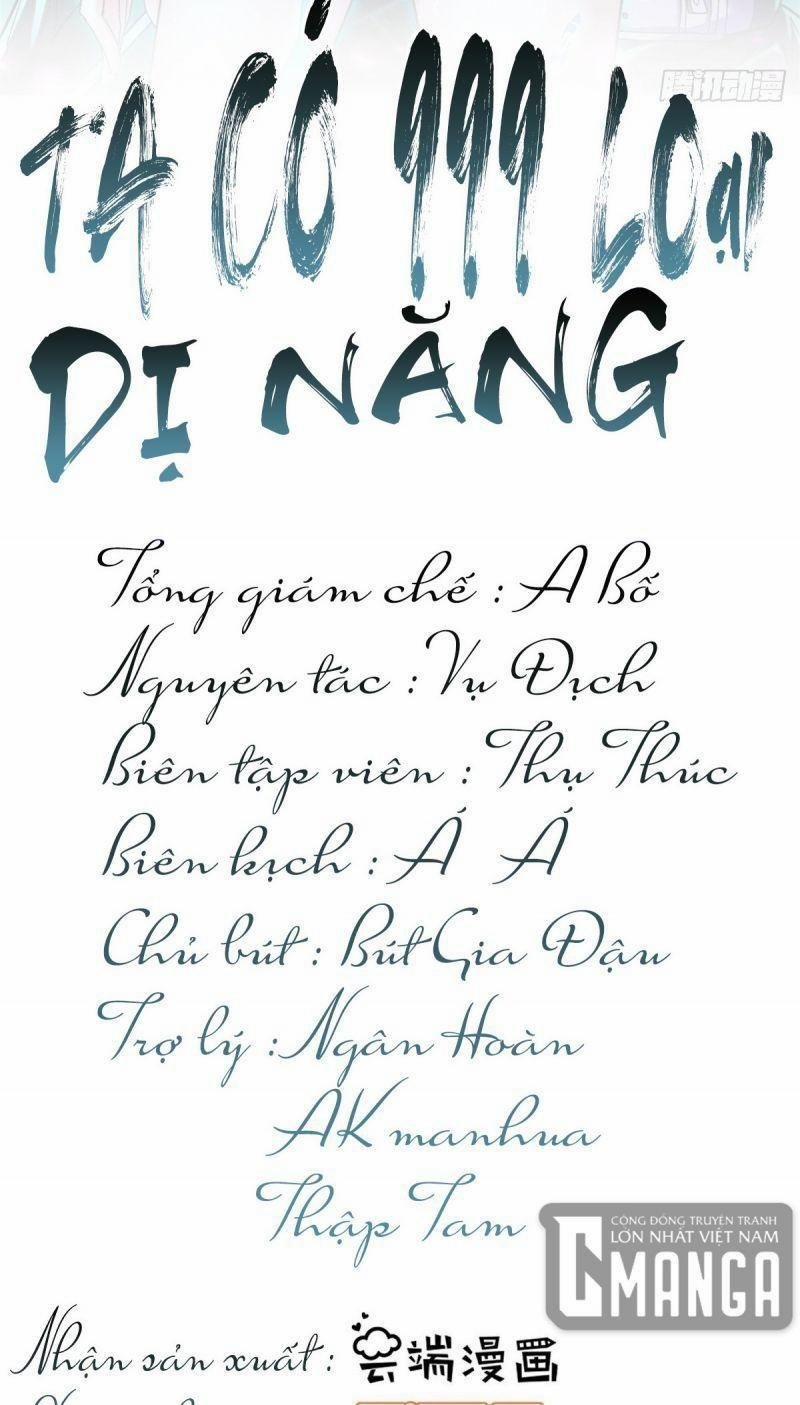 腾讯动漫
TA CÓ 999 LOẠI
DỊ NĂNG
Tổng giám chế : A Bố
Nguyên tác : Vụ Địch
Biên tập viên : Thụ Thúc
Biên kịch : Á Á
Chủ bút : Bút Gia Đậu
Trợ lý : Ngân Hoàn
AK manhua
Thập Tam
CỘNG ĐỒNG TRUYỆN TRANH
LỚN NHẤT VIỆT NAM
CMANGA
Nhận sản xuất : 云端漫画